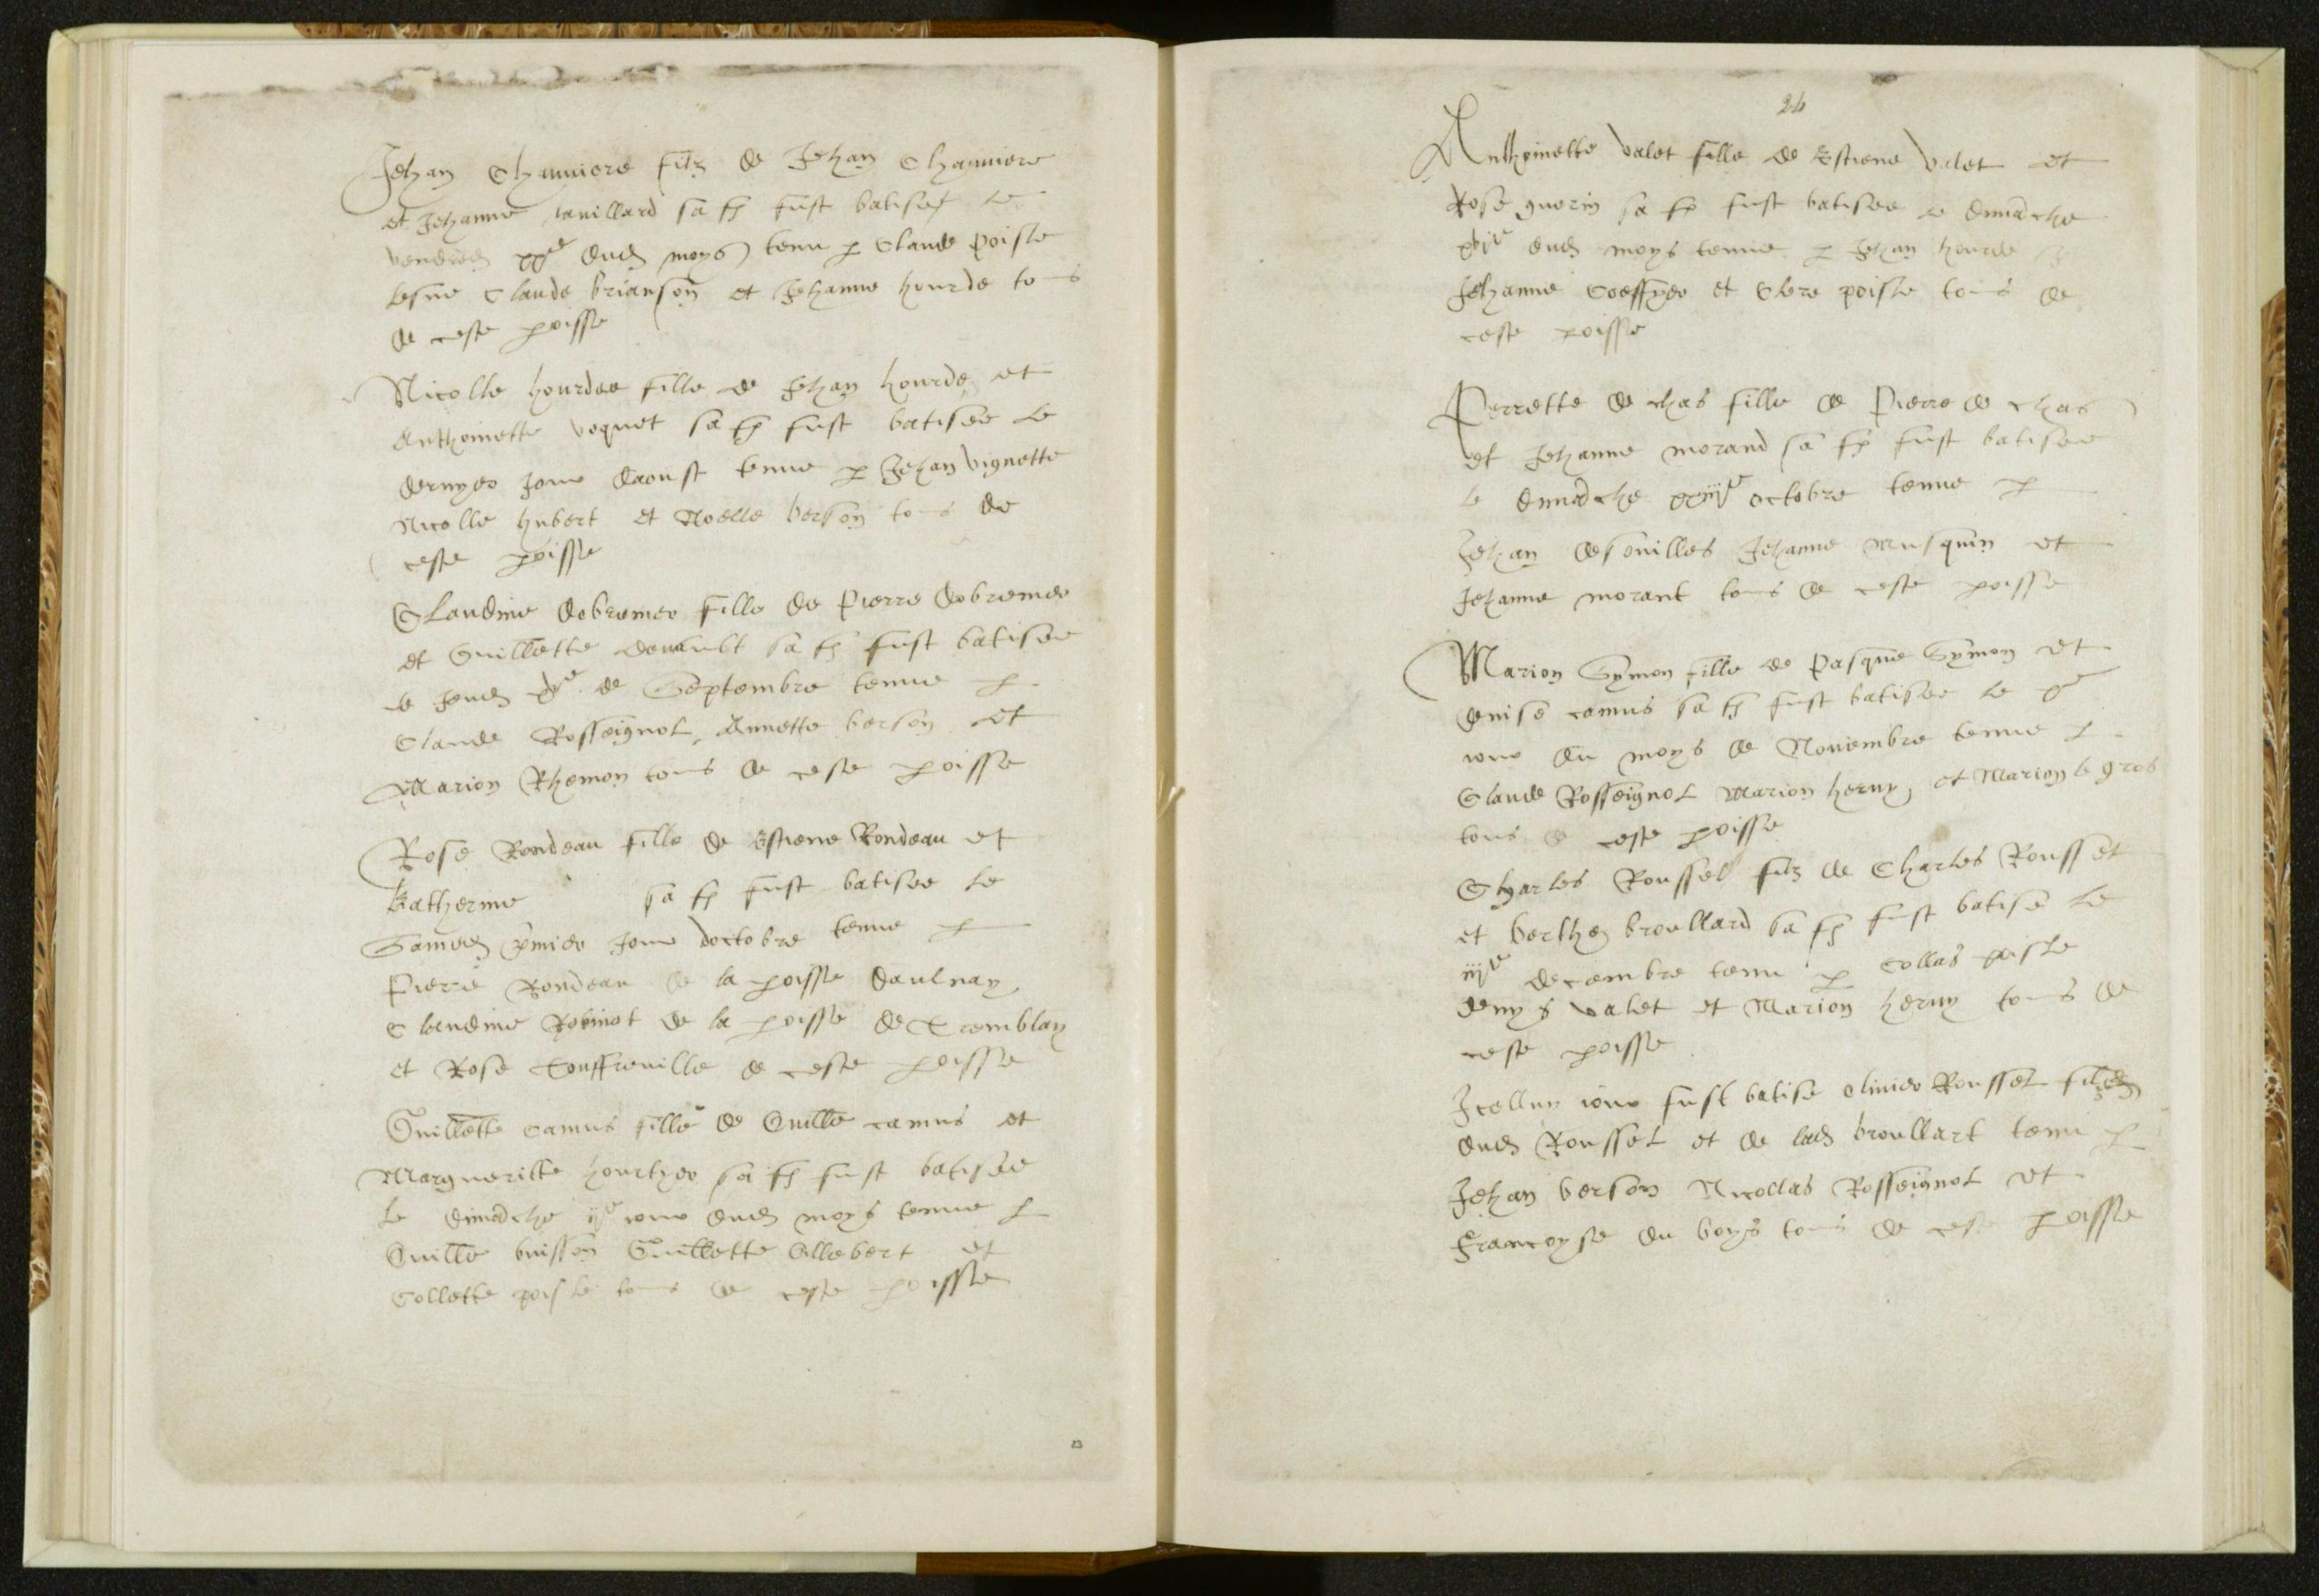 Jehan Chauviere filz de Jehan Chauviere
et Jehanne sa fe fust batisey le
vendredi xxe dud moys tenu p Claude poisle
lesne Claude brianson et Jehanne hourde tous
de ceste poisse
Nicolle hourdee fille de Jehan hourde et
Anthoinette voquet sa fe fust batisee le
dernyer Jour daoust tenue p Jehan vignette
Nicolle hubert et Noelle berson tous de
ceste poisse
Claudine fille de Pierre
et Guillette sa fe fust batisee
le Jeudi de Septembre tenue p
Claude Rosseignol Annette berson et
Marion Rhemon tous de ceste poisse
Rose Rondeau fille de Estiene Rondeau et
Katherine sa fe fust batisee le
Samedi pmier Jour doctobre tenue p
Pierre Rondeau de la poisse daulnay
Claudine Robinot de la poisse de Tremblay
et Rose Souffreville de ceste poisse
Guillette camus fille de Guille camus et
Margueritte sa fe fust batisee
le dimache ije iour dud moys tenue p
Guille buisson Guillette Gillebert et
Collette poisle tous de ceste poisse
26
Anthoinette valet fille de Estiene valet et
Rose guerin sa fe fust batisee le dimache
xvje dud moys tenue p Jehan hourde
Jehanne et Clere poisle tous de
ceste poisse
Perrette de chas fille de Pierre de chas
et Jehanne morand sa fe fust batisee
le dimache xxiije octobre tenue p
Jehan Jehanne musquin et
Jehanne morant tous de ceste poisse
Marion Symon fille de Pasque Symon et
denise camus sa fe fust batisee le xe
iour du moys de Novembre tenue p
Claude Rosseignol Marion herny et Marion le gros
tous de ceste poisse
Charles Roussel filz de Charles Roussel
et berthe broullard sa fe fust batise le
iije decembre tenu p Collas poisle
denys valet et Marion herny tous de
ceste poisse
Icelluy iour fust batise olivier Roussel filz
dud Roussel et de lad broullart tenu p
Jehan berson Nicollas Rosseignol et
Francoyse du boys tous de ceste poisse